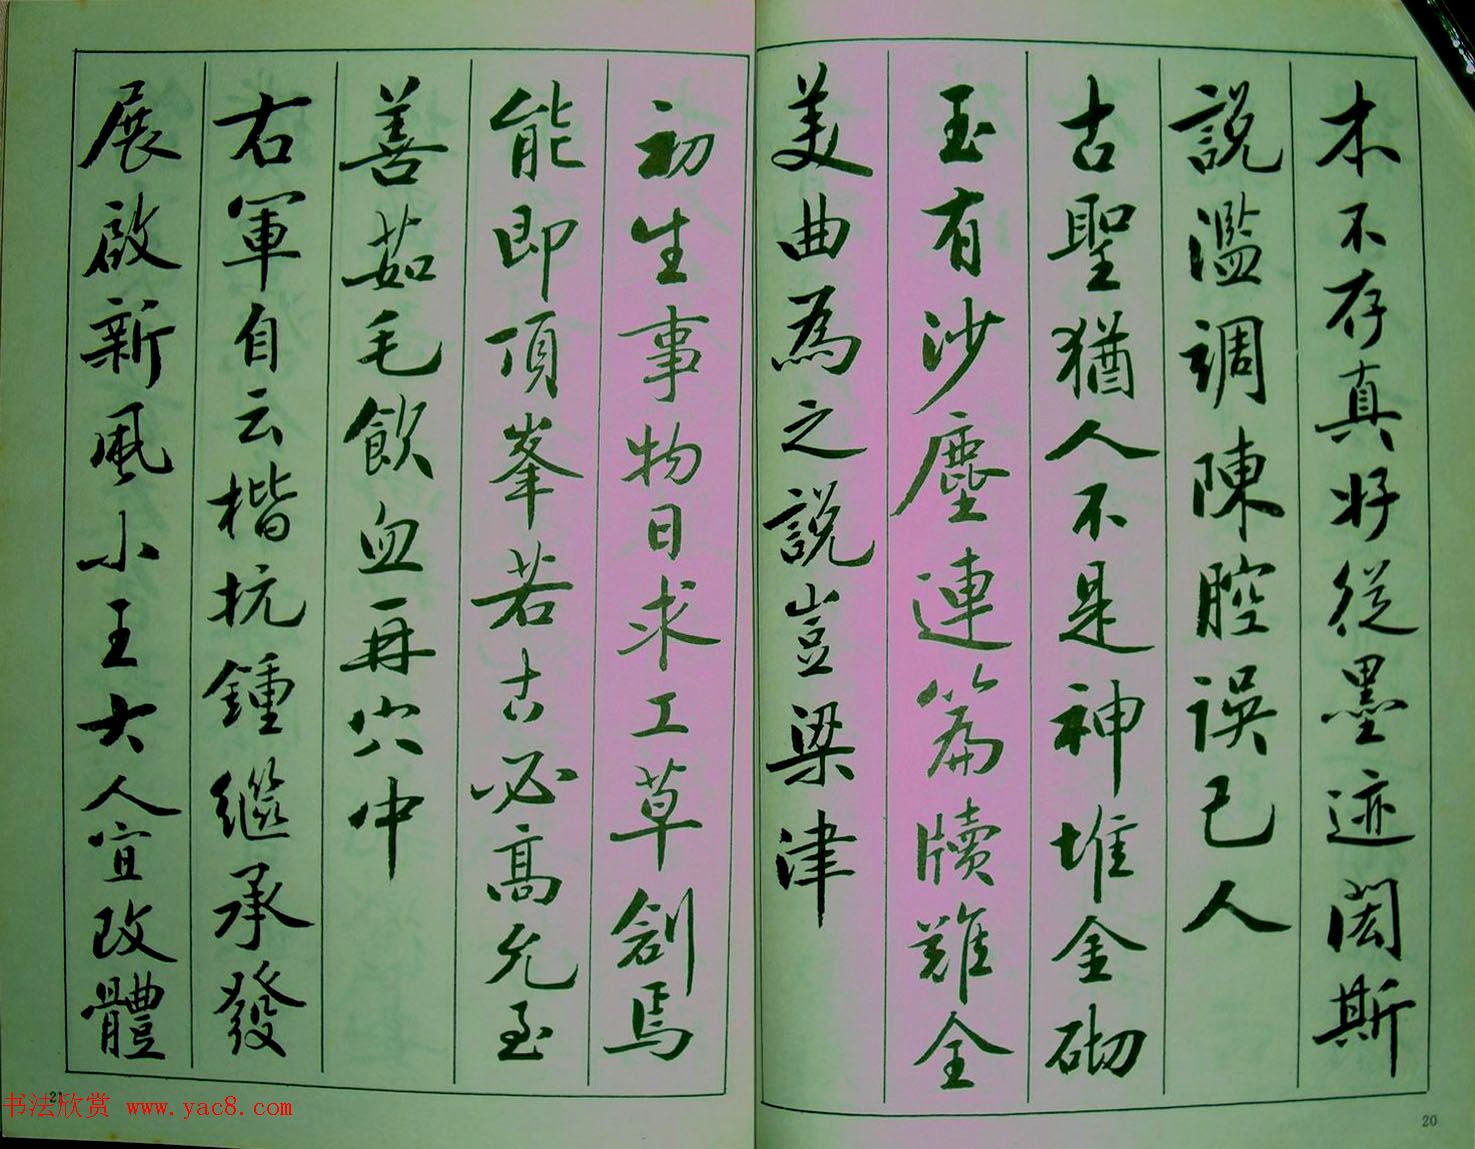 木不存真好從墨迹闳斯
說濫調陳腔誤己人
古聖猶人不是神堆金砌
玉有沙塵連篇牘難全
美曲為之說豈梁津
初生事物日求工草創焉
能即頂峯若古必高允至
善茹毛飲血再穴中
右軍自云楷抗鍾繼承發
展啟新風小王大人宜改體
20
21
书法欣赏 www.yac8.com